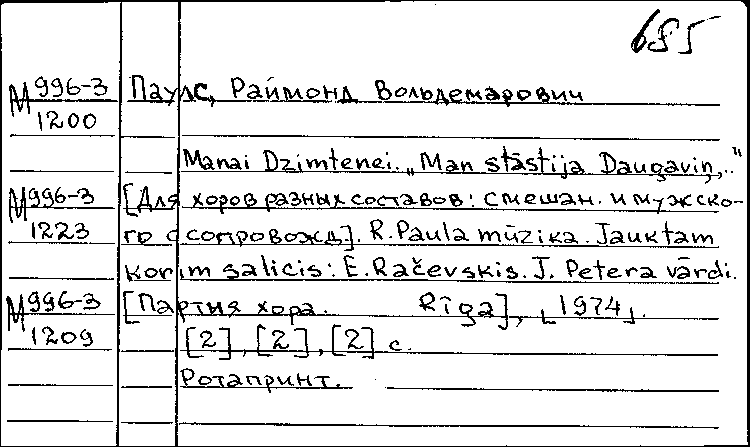 685
М 996-3 Паулс, Раймонд Вольдемарович
1200
Manai Dzimtenei. „Man stāstija Daugaviņ,..“
М 996-3 [Для хоров разных составов: смешан. и мужско-
1223 го с сопровожд.]. R. Paula mūzika. Jauktam
korim salicis: E. Račevskis. J. Petera vārdi.
М 996-3 [Партия хора. Rīga], [1974].
1209 [2], [2], [2] с.
Ротапринт.